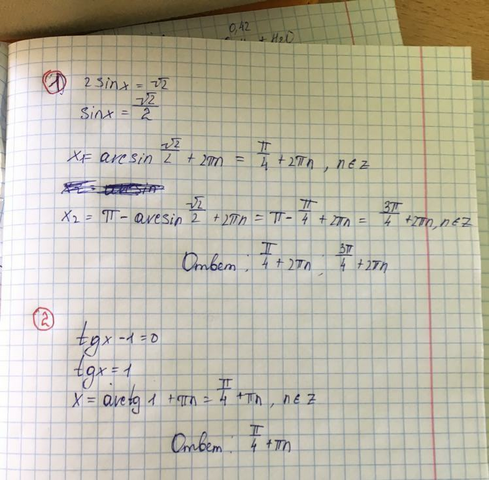 0,42
1
2 sinx = √2
sinx = √2/2
x₁ = arcsin √2/2 + 2πn = π/4 + 2πn, n∈z
x₂ = π - arcsin √2/2 + 2πn = π - π/4 + 2πn = 3π/4 + 2πn, n∈z
Ответ: π/4 + 2πn; 3π/4 + 2πn
2
tgx - 1 = 0
tgx = 1
x = arctg 1 + πn = π/4 + πn, n∈z
Ответ: π/4 + πn